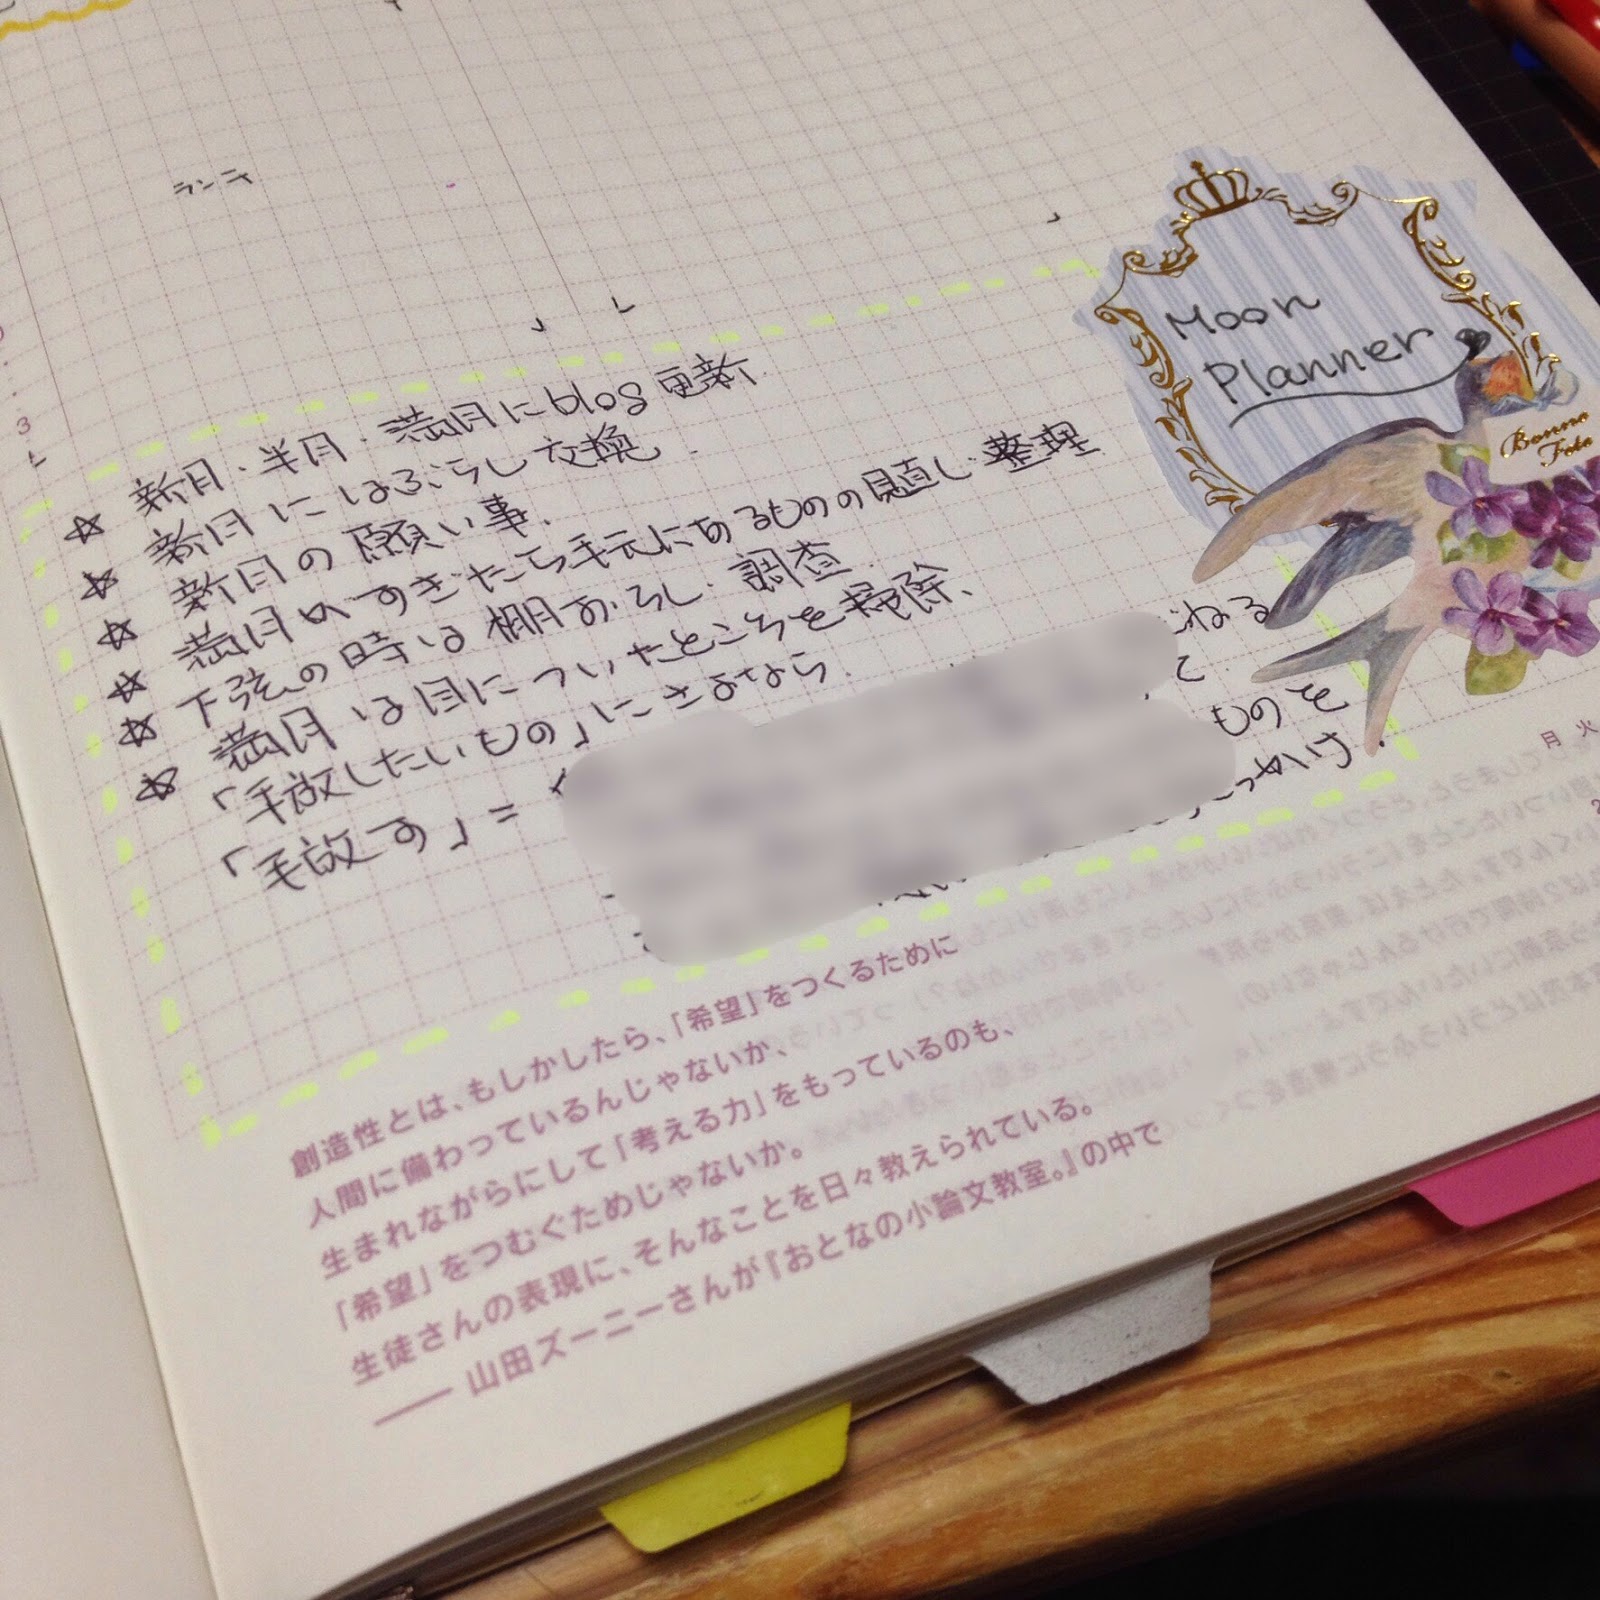 ランニ
3
Moon
Planner
Bonne
Fete
☆ 新月・半月・満月にblog更新
☆ 新月にはぶらし交換.
☆ 新月の願い事.
☆ 満月のすぎたら手元にあるものの見直し・整理
☆ 下弦の時は棚おろし・調査.
☆ 満月は目についたところを掃除、
「手放したいもの」にさよなら.
「手放す」=「 ねる
て.
ものを
っかけ.
月 火
創造性とは、もしかしたら、「希望」をつくるために
人間に備わっているんじゃないか、
生まれながらにして「考える力」をもっているのも、
「希望」をつむぐためじゃないか。
生徒さんの表現に、そんなことを日々教えられている。
── 山田ズーニーさんが『おとなの小論文教室。』の中で